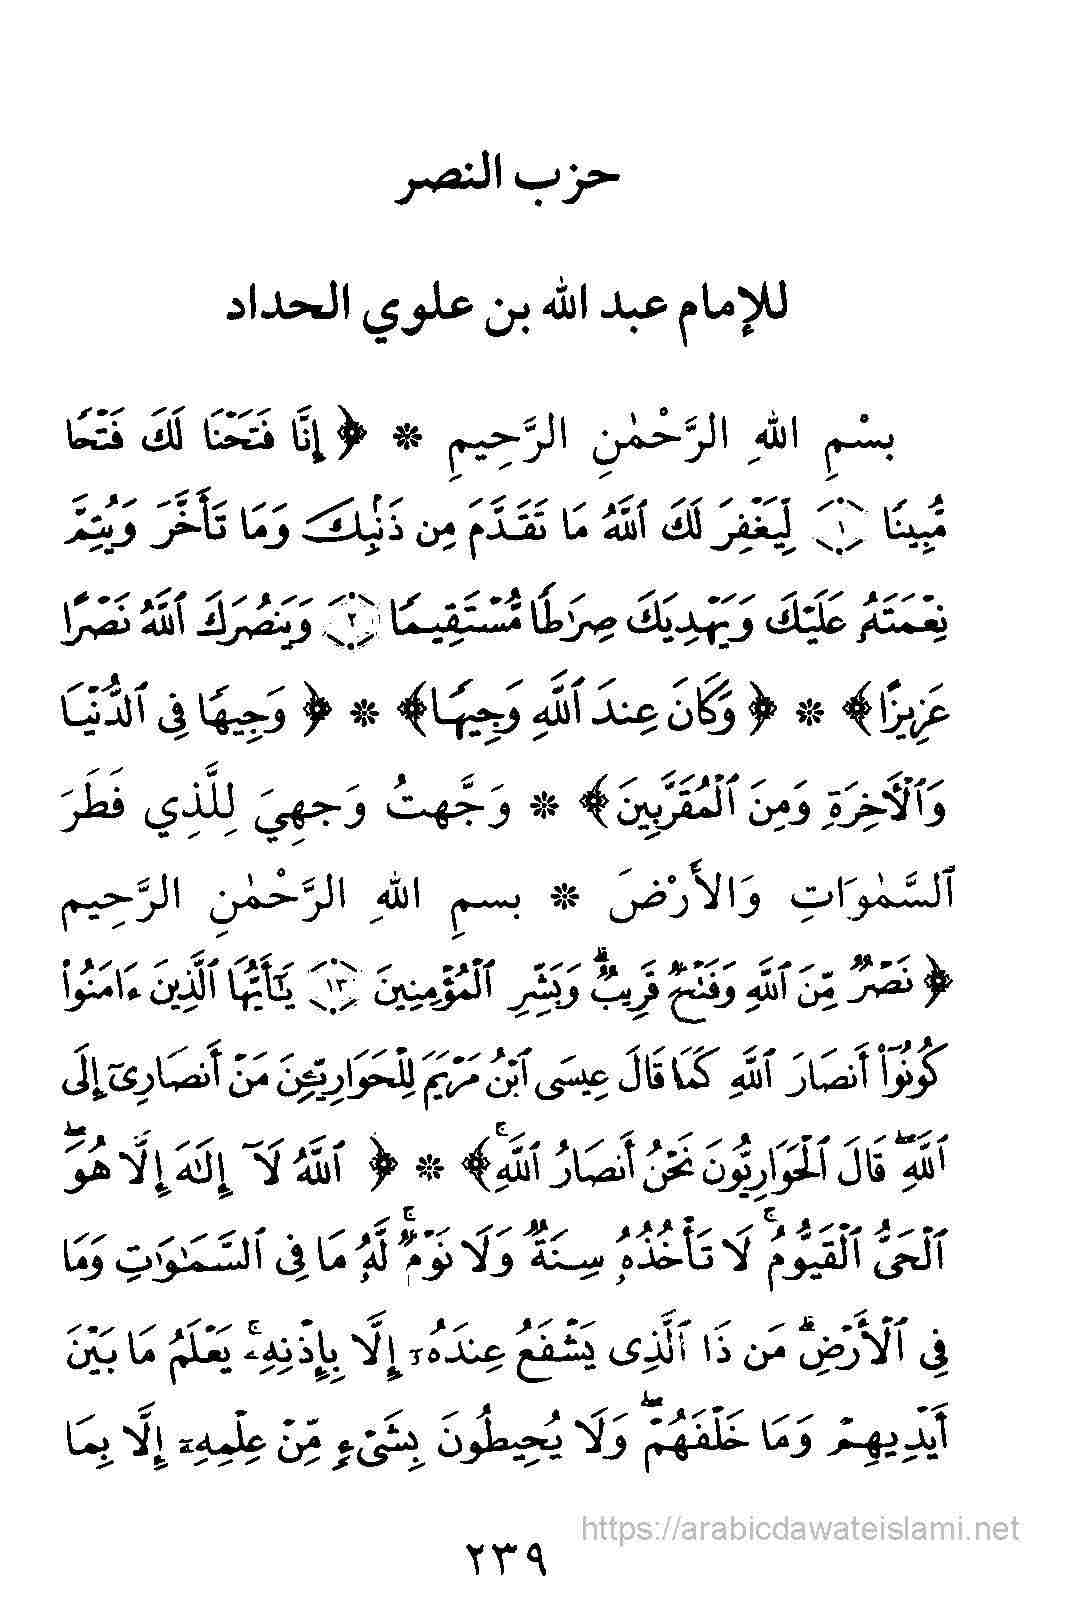 حزب النصر
للإمام عبد الله بن علوي الحداد
بسْمِ اللهِ الرَّحْمٰنِ الرَّحِيمِ ❊ ﴿ إِنَّا فَتَحْنَا لَكَ فَتْحًا
مُّبِينًا ۝١ لِّيَغْفِرَ لَكَ ٱللَّهُ مَا تَقَدَّمَ مِن ذَنۢبِكَ وَمَا تَأَخَّرَ وَيُتِمَّ
نِعْمَتَهُۥ عَلَيْكَ وَيَهْدِيَكَ صِرَٰطًا مُّسْتَقِيمًا ۝٢ وَيَنصُرَكَ ٱللَّهُ نَصْرًا
عَزِيزًا﴾ ❊ ﴿ وَكَانَ عِندَ ٱللَّهِ وَجِيهًا﴾ ❊ ﴿ وَجِيهًا فِى ٱلدُّنْيَا
وَٱلْأَخِرَةِ وَمِنَ ٱلْمُقَرَّبِينَ﴾ ❊ وَجَّهتُ وَجهِيَ لِلَّذِي فَطَرَ
ٱلسَّمٰوَاتِ وَالأَرْضَ ❊ بسمِ اللهِ الرَّحْمٰنِ الرَّحِيم
﴿ نَصْرٌ مِّنَ ٱللَّهِ وَفَتْحٌ قَرِيبٌ ۗ وَبَشِّرِ ٱلْمُؤْمِنِينَ ۝١٣ يَٰٓأَيُّهَا ٱلَّذِينَ ءَامَنُوا۟
كُونُوٓا۟ أَنصَارَ ٱللَّهِ كَمَا قَالَ عِيسَى ٱبْنُ مَرْيَمَ لِلْحَوَارِيِّـۧنَ مَنْ أَنصَارِىٓ إِلَى
ٱللَّهِ ۖ قَالَ ٱلْحَوَارِيُّونَ نَحْنُ أَنصَارُ ٱللَّهِ ۚ﴾ ❊ ﴿ ٱللَّهُ لَآ إِلَٰهَ إِلَّا هُوَ ۖ
ٱلْحَىُّ ٱلْقَيُّومُ ۚ لَا تَأْخُذُهُۥ سِنَةٌ وَلَا نَوْمٌ ۚ لَّهُۥ مَا فِى ٱلسَّمَٰوَٰتِ وَمَا
فِى ٱلْأَرْضِ ۗ مَن ذَا ٱلَّذِى يَشْفَعُ عِندَهُۥٓ إِلَّا بِإِذْنِهِۦ ۚ يَعْلَمُ مَا بَيْنَ
أَيْدِيهِمْ وَمَا خَلْفَهُمْ ۖ وَلَا يُحِيطُونَ بِشَىْءٍ مِّنْ عِلْمِهِۦٓ إِلَّا بِمَا
https://arabicdawateislami.net
٢٣٩